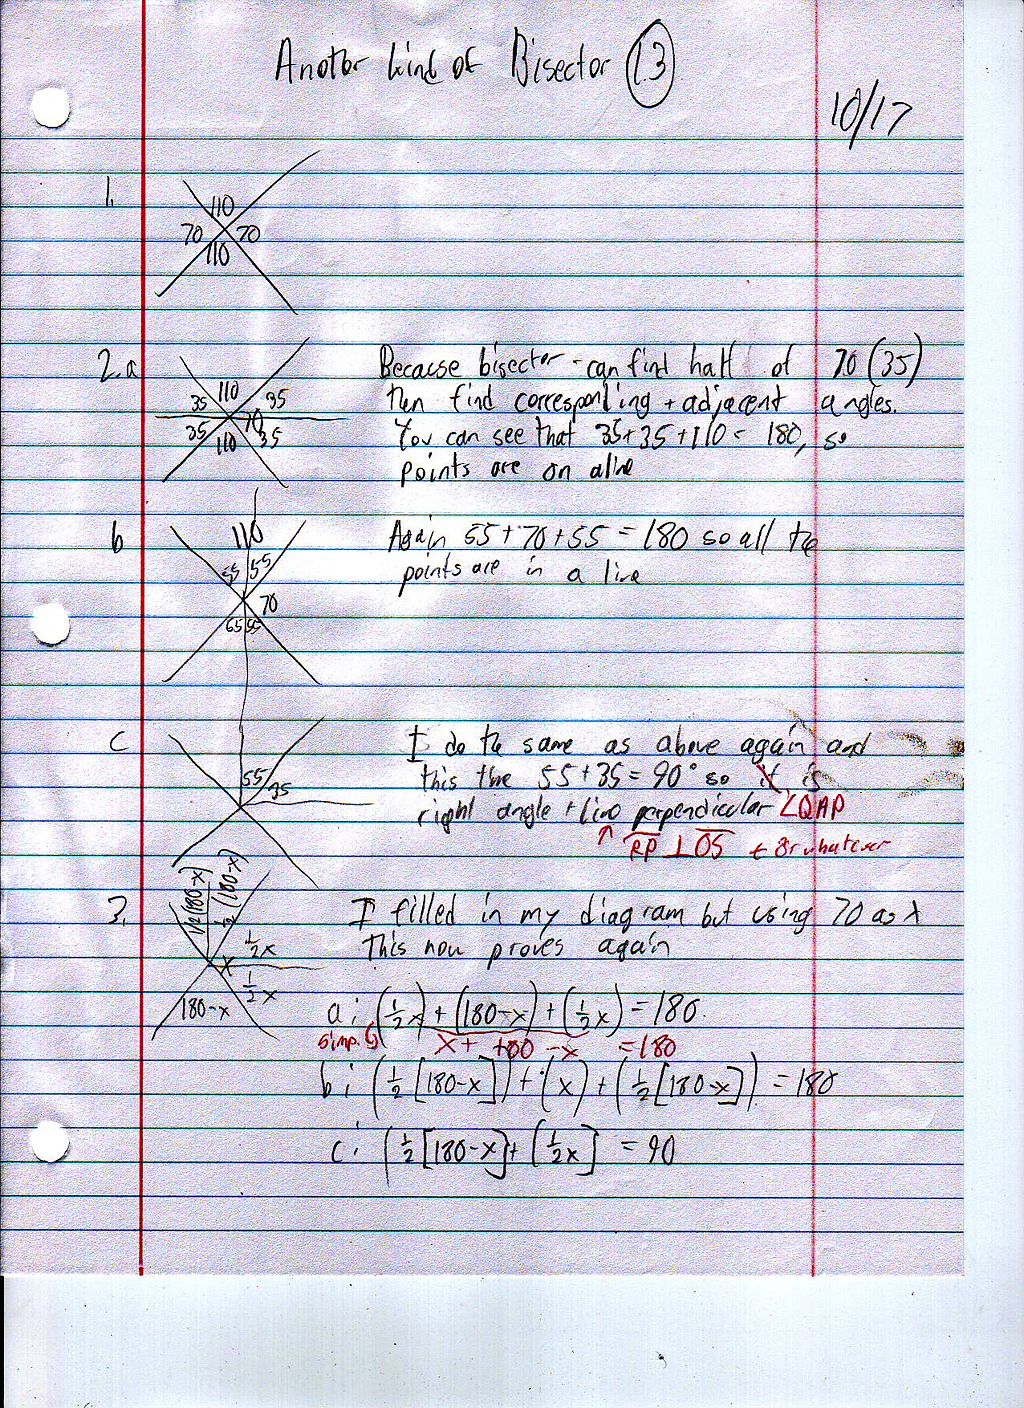 Another kind of Bisector 13
10/17
1.
110
70 70
110
2.a
110
35 35
70
35 110 35
Because bisector - can find half of 70 (35)
then find corresponding + adjacent angles.
You can see that 35+35+110 = 180, so
points are on a line
b
110
55 55
70
65 55
Again 55+70+55 = 180 so all the
points are in a line
c
55 35
I do the same as above again and
this time 55+35=90° so it is
right angle + line perpendicular ∠QAP
↑ RP ⊥ OS + or whatever
3.
1/2(180-x) 1/2(180-x)
1/2x
x
180-x 1/2x
I filled in my diagram but using 70 as x
this now proves again
a: (1/2x) + (180-x) + (1/2x) = 180.
simp. x + 180 - x = 180
b: (1/2[180-x]) + (x) + (1/2[180-x]) = 180
c: (1/2[180-x] + (1/2x] = 90